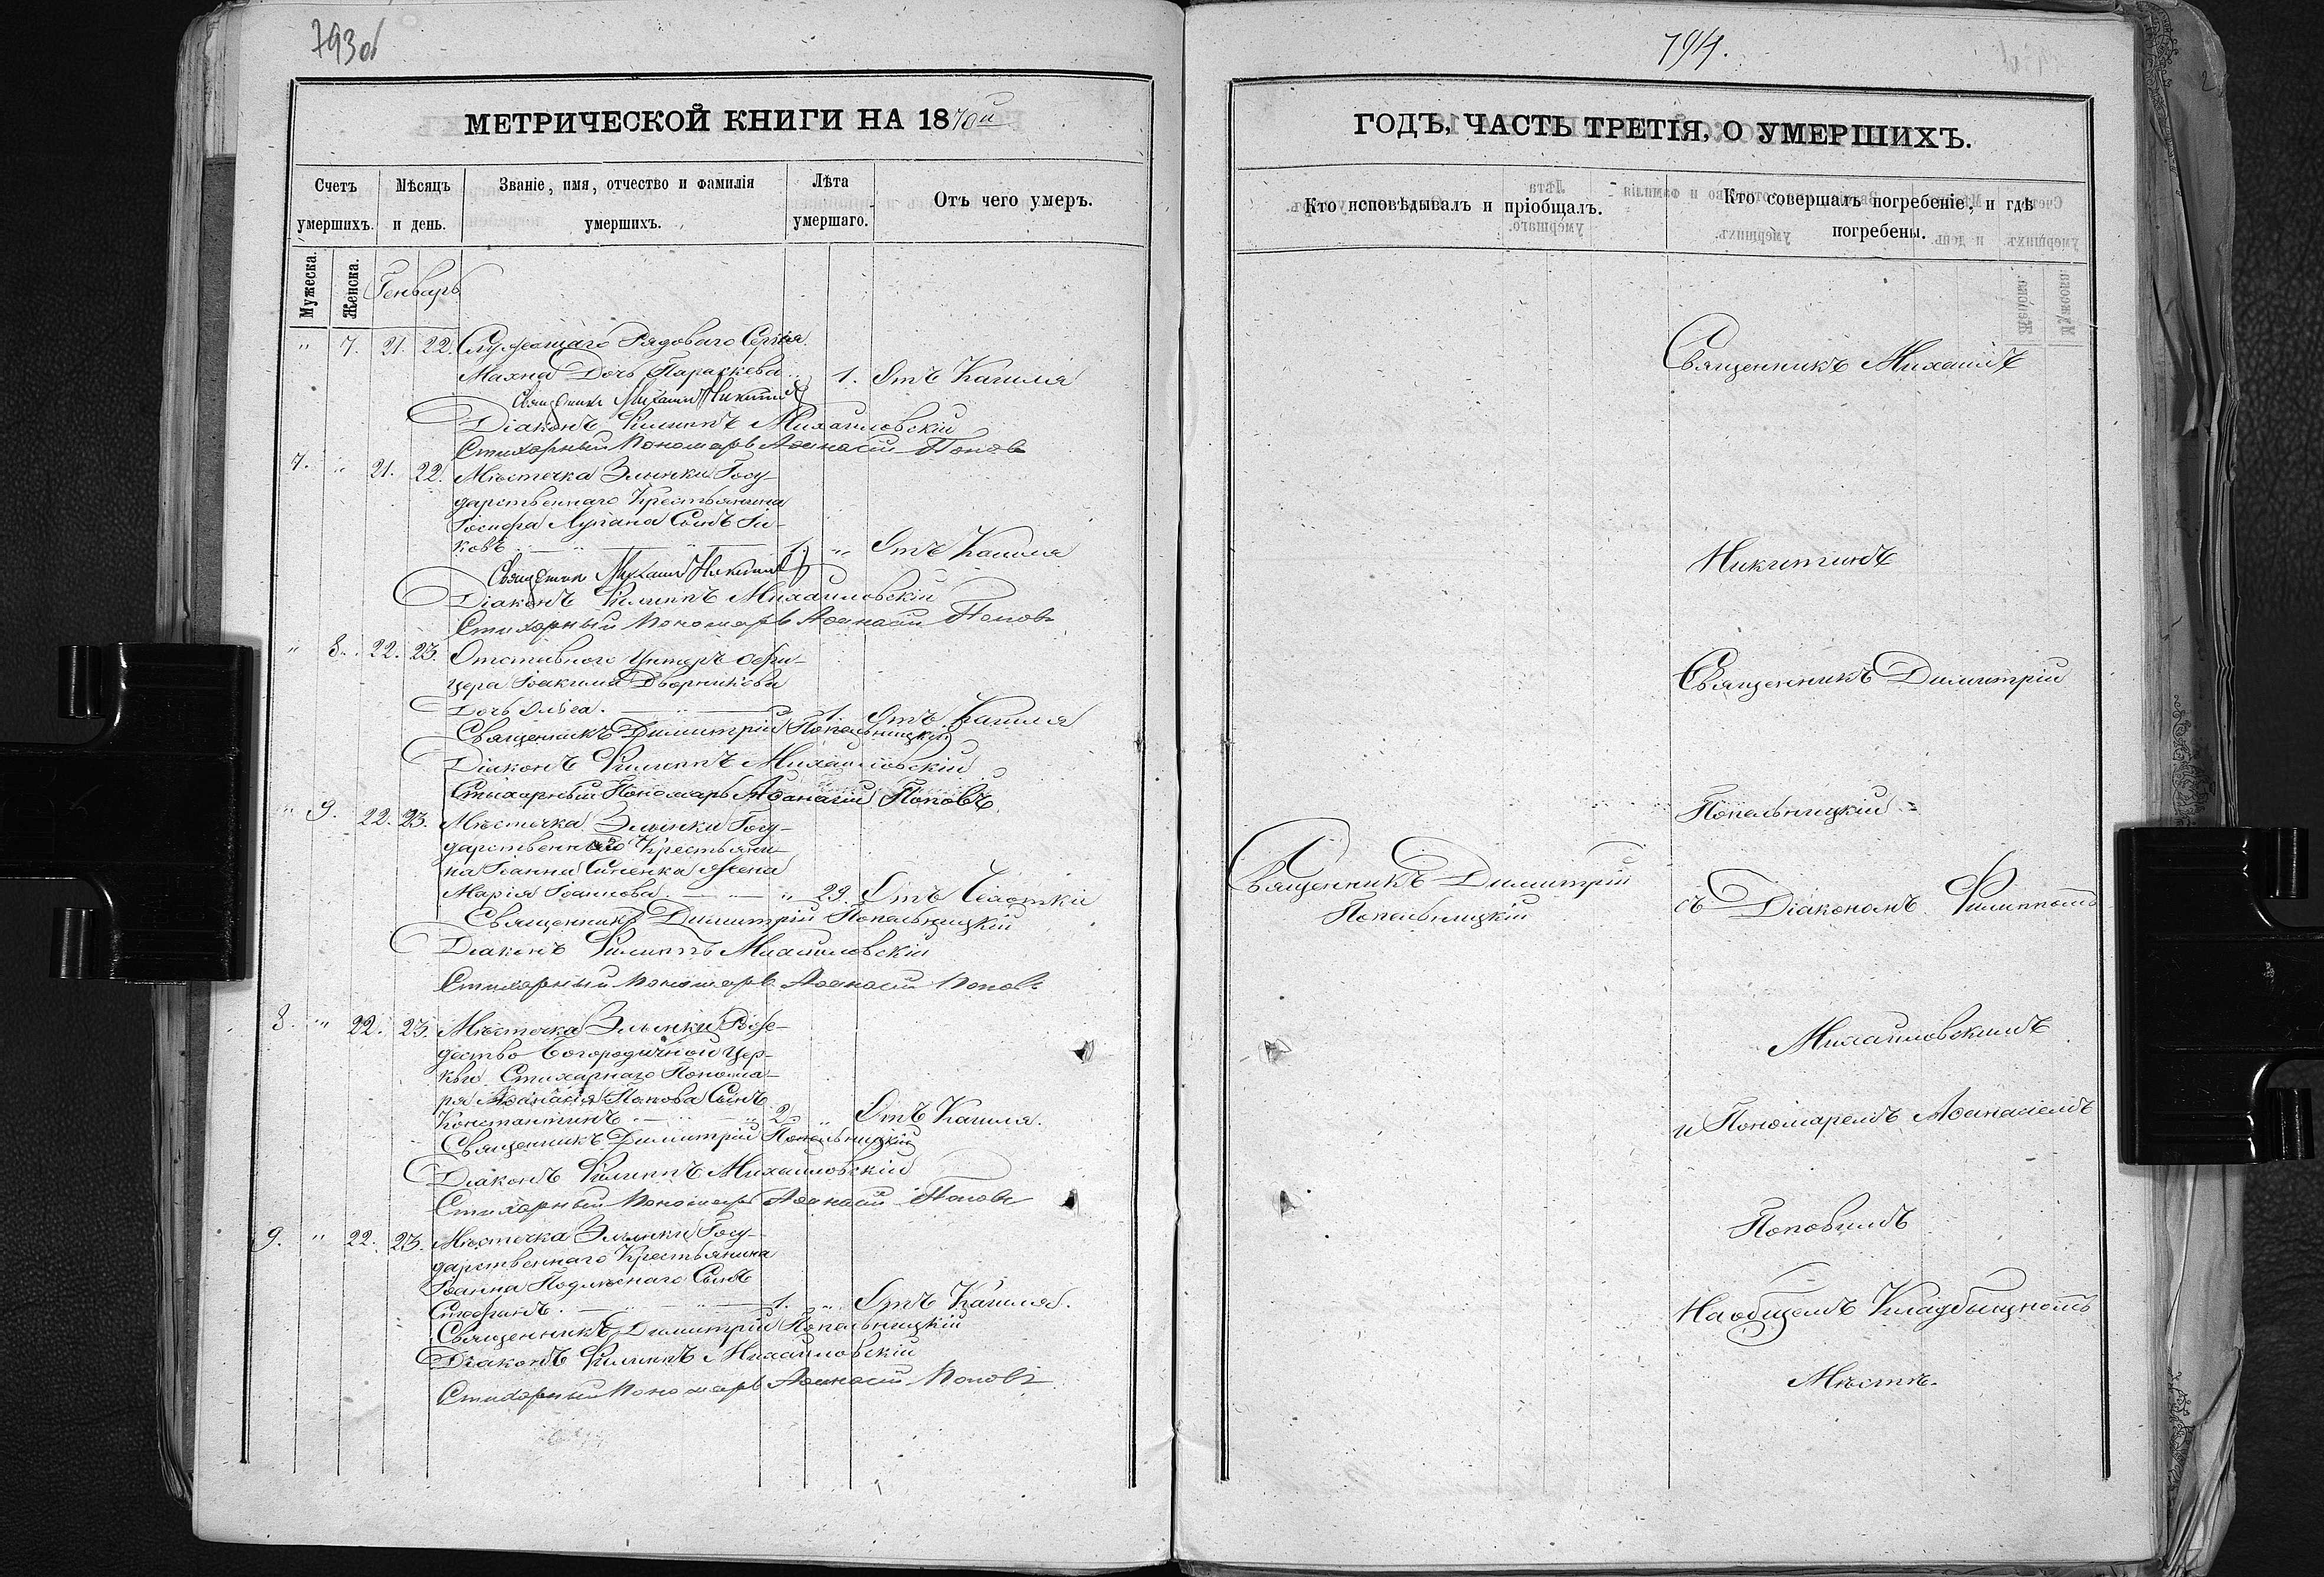 793об
МЕТРИЧЕСКОЙ КНИГИ НА 1870й
Счетъ умершихъ.
Мѣсяцъ и день.
Званіе, имя, отчество и фамилія умершихъ.
Лѣта умершаго.
Отъ чего умеръ.
Мужеска.
Женска.
Генварь
" 7. 21. 22. Служащаго Рядоваго Сергія
Махна Дочь Параскева 1. Отъ Кашля
Священникъ Михаилъ Никитинъ
Діаконъ Филиппъ Михайловскій
Стихарный Пономарь Аѳанасій Поповъ
7. " 21. 22. Мѣстечка Злынки Госу-
дарственнаго Крестьянина
Іосифа Лупана Сынъ Іа-
ковъ 1. " Отъ Кашля
Священникъ Михаилъ Никитинъ
Діаконъ Филиппъ Михайловскій
Стихарный Пономарь Аѳанасій Поповъ
" 8. 22. 23. Отставного Унтеръ офи-
цера Іоакима Дворникова
Дочь Ольга. 1. Отъ Кашля
Священникъ Димитрій Попельницкій
Діаконъ Филиппъ Михайловскій
Стихарный Пономарь Аѳанасій Поповъ
" 9. 22. 23. Мѣстечка Злынки Госу-
дарственнаго Крестьяни-
на Іоанна Синенка Жена
Марія Іоаннова " 29. Отъ Чахотки
Священникъ Димитрій Попельницкій
Діаконъ Филиппъ Михайловскій
Стихарный Пономарь Аѳанасій Поповъ
8. " 22. 23. Мѣстечка Злынки Рож-
дество Богородичной Цер-
кви Стихарнаго Понома-
ря Аѳанасія Попова Сынъ
Константинъ 2. " Отъ Кашля.
Священникъ Димитрій Попельницкій
Діаконъ Филиппъ Михайловскій
Стихарный Пономарь Аѳанасій Поповъ
9. " 22. 23. Мѣстечка Злынки Госу-
дарственнаго Крестьянина
Іоанна Подлѣснаго Сынъ
Стефанъ. 1. " Отъ Кашля.
Священникъ Димитрій Попельницкій
Діаконъ Филиппъ Михайловскій
Стихарный Пономарь Аѳанасій Поповъ
794.
ГОДЪ, ЧАСТЬ ТРЕТІЯ, О УМЕРШИХЪ.
Кто исповѣдывалъ и пріобщалъ.
Кто совершалъ погребеніе, и гдѣ
погребены.
Священникъ Михаилъ
Никитинъ
Священникъ Димитрій
Попельницкій
Священникъ Димитрій
Попельницкій
съ Діакономъ Филиппомъ
Михайловскимъ
и Пономаремъ Аѳанасіемъ
Поповымъ
На общемъ Кладбищномъ
Мѣстѣ.